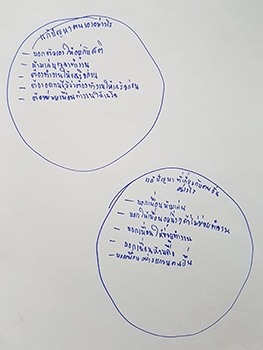 แก้ปัญหาตนเองอย่างไร
- บอกตัวเองให้อยู่กับสติ
- ห้ามเล่นเวลาทำงาน
- ต้องทำงานให้เสร็จก่อน
- ต้องอดทนไว้ว่าต้องทำงานให้เสร็จก่อน
- ต้องเพื่อนทำงาน
แก้ปัญหาที่เกี่ยวกับคนอื่น
อย่างไร
- บอกเพื่อน
- บอกให้เพื่อนอยู่นิ่งๆ ถ้าไม่ช่วยทำงาน
- บอกเพื่อนให้ช่วยทำงาน
- บอกเพื่อน
- บอกเพื่อนอย่ารบกวนคนอื่น